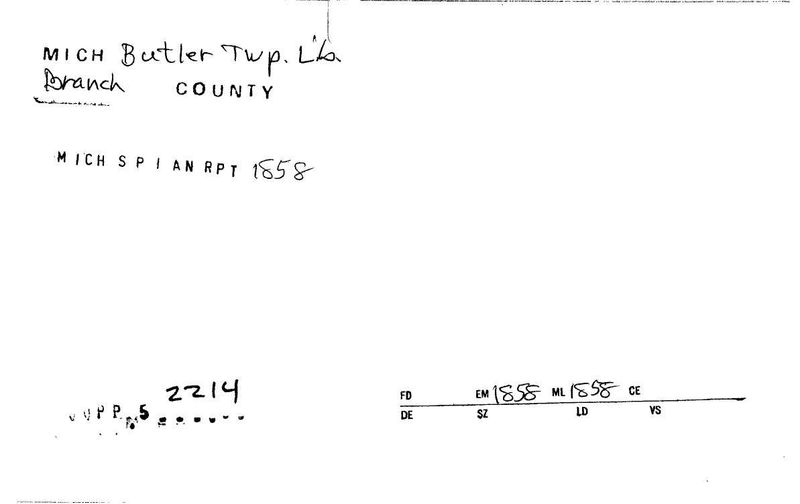 MICH Butler Twp. Lib.
Branch COUNTY
MICH S P I AN RPT 1858
2214
PP 5
FD EM 1858 ML 1858 CE
DE SZ LD VS